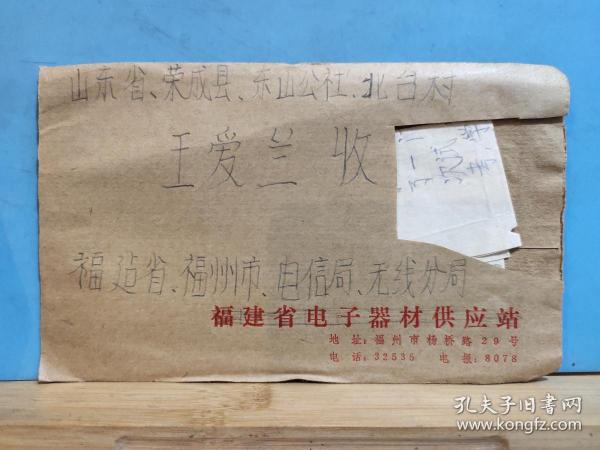 山东省、荣成县、东山公社、北台村
王爱兰 收
福建省、福州市、电信局、无线分局
福建省电子器材供应站
地址:福州市杨桥路29号
电话:32535 电报:8078
孔夫子旧书网